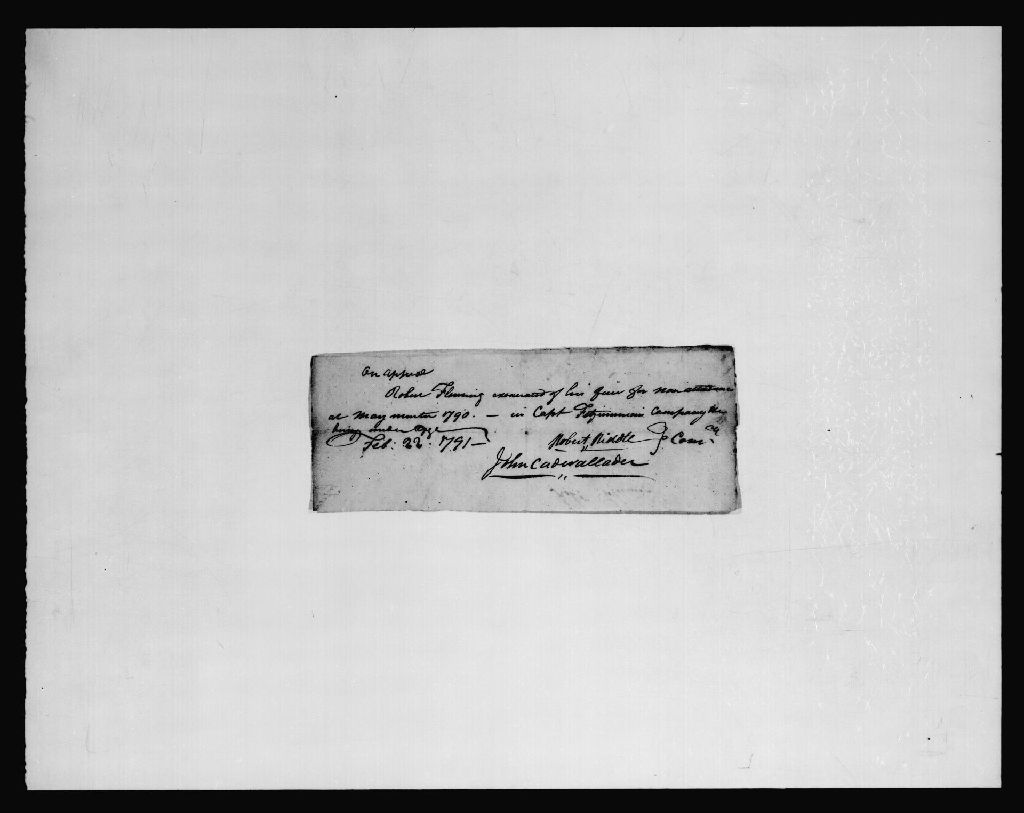 On appeal
Robert Fleming exonerated of his fine for nonattendance
at May muster 1790. — in Capt Fitzsimmons Company he
being under age
Feb. 22. 1791—
Robert Riddle } Com.
John Cadwallader